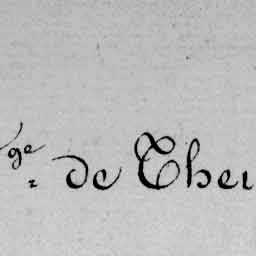 ge de Ther